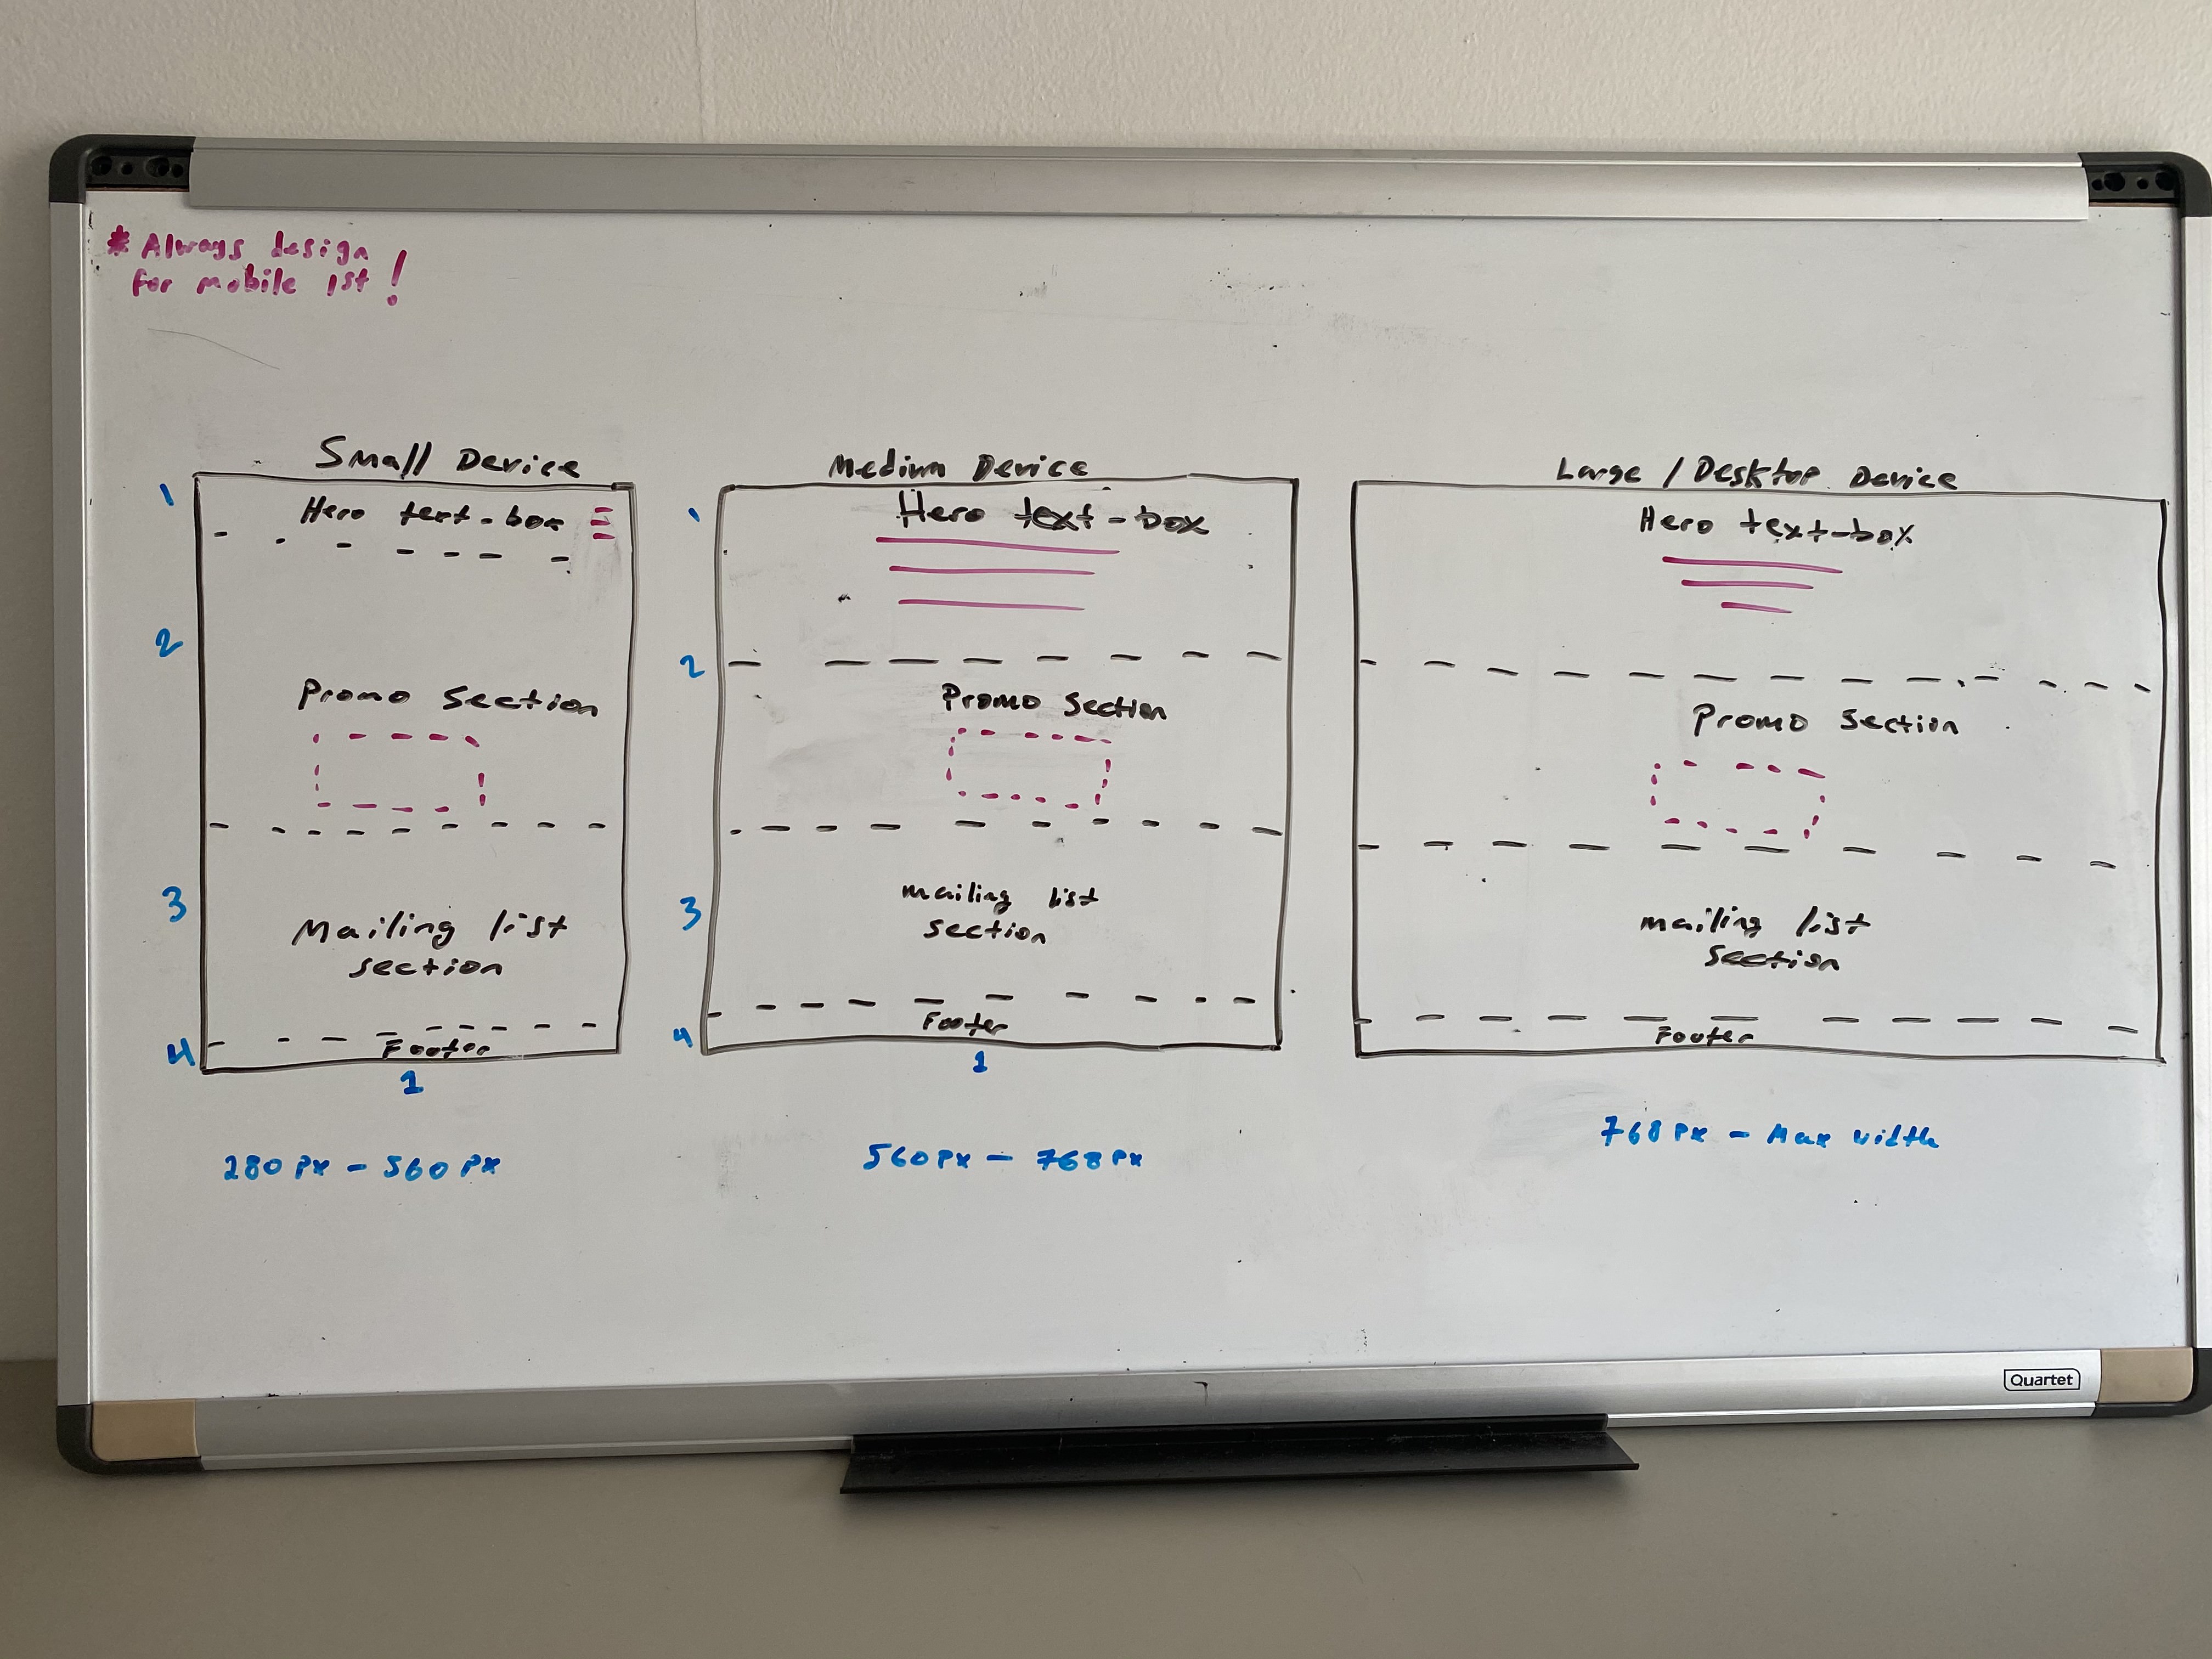 * Always design
for mobile 1st!
Small Device
1
Hero text-box
2
Promo section
3
Mailing list
section
4
Footer
1
280px - 560px
Medium Device
1
Hero text-box
2
Promo section
3
mailing list
section
4
Footer
1
560px - 768px
Large / Desktop Device
Hero text-box
Promo section
mailing list
section
Footer
768px - Max width
Quartet